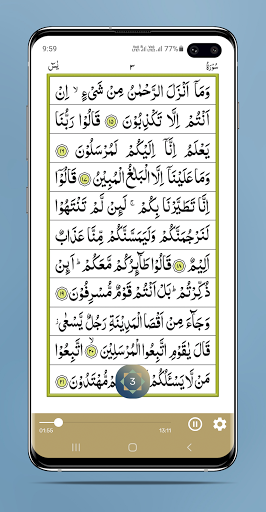 9:59 77%
سُوْرَةُ ٣ يٰسٓ
وَمَاۤ اَنْزَلَ الرَّحْمٰنُ مِنْ شَیْءٍ ۙ اِنْ
اَنْتُمْ اِلَّا تَكْذِبُوْنَ ﴿۱۵﴾ قَالُوْا رَبُّنَا
یَعْلَمُ اِنَّاۤ اِلَیْكُمْ لَمُرْسَلُوْنَ ﴿۱۶﴾
وَمَا عَلَیْنَاۤ اِلَّا الْبَلٰغُ الْمُبِیْنُ ﴿۱۷﴾ قَالُوْۤا
اِنَّا تَطَیَّرْنَا بِكُمْ ۚ لَىِٕنْ لَّمْ تَنْتَهُوْا
لَنَرْجُمَنَّكُمْ وَلَیَمَسَّنَّكُمْ مِّنَّا عَذَابٌ
اَلِیْمٌ ﴿۱۸﴾ قَالُوْا طَآىِٕرُكُمْ مَّعَكُمْ ؕ اَىِٕنْ
ذُكِّرْتُمْ ؕ بَلْ اَنْتُمْ قَوْمٌ مُّسْرِفُوْنَ ﴿۱۹﴾
وَجَآءَ مِنْ اَقْصَا الْمَدِیْنَةِ رَجُلٌ یَّسْعٰی ؗ
قَالَ یٰقَوْمِ اتَّبِعُوا الْمُرْسَلِیْنَ ﴿۲۰﴾ اتَّبِعُوْا
مَنْ لَّا یَسْـَٔلُكُمْ 3 مُّهْتَدُوْنَ ﴿۲۱﴾
01:56 13:11